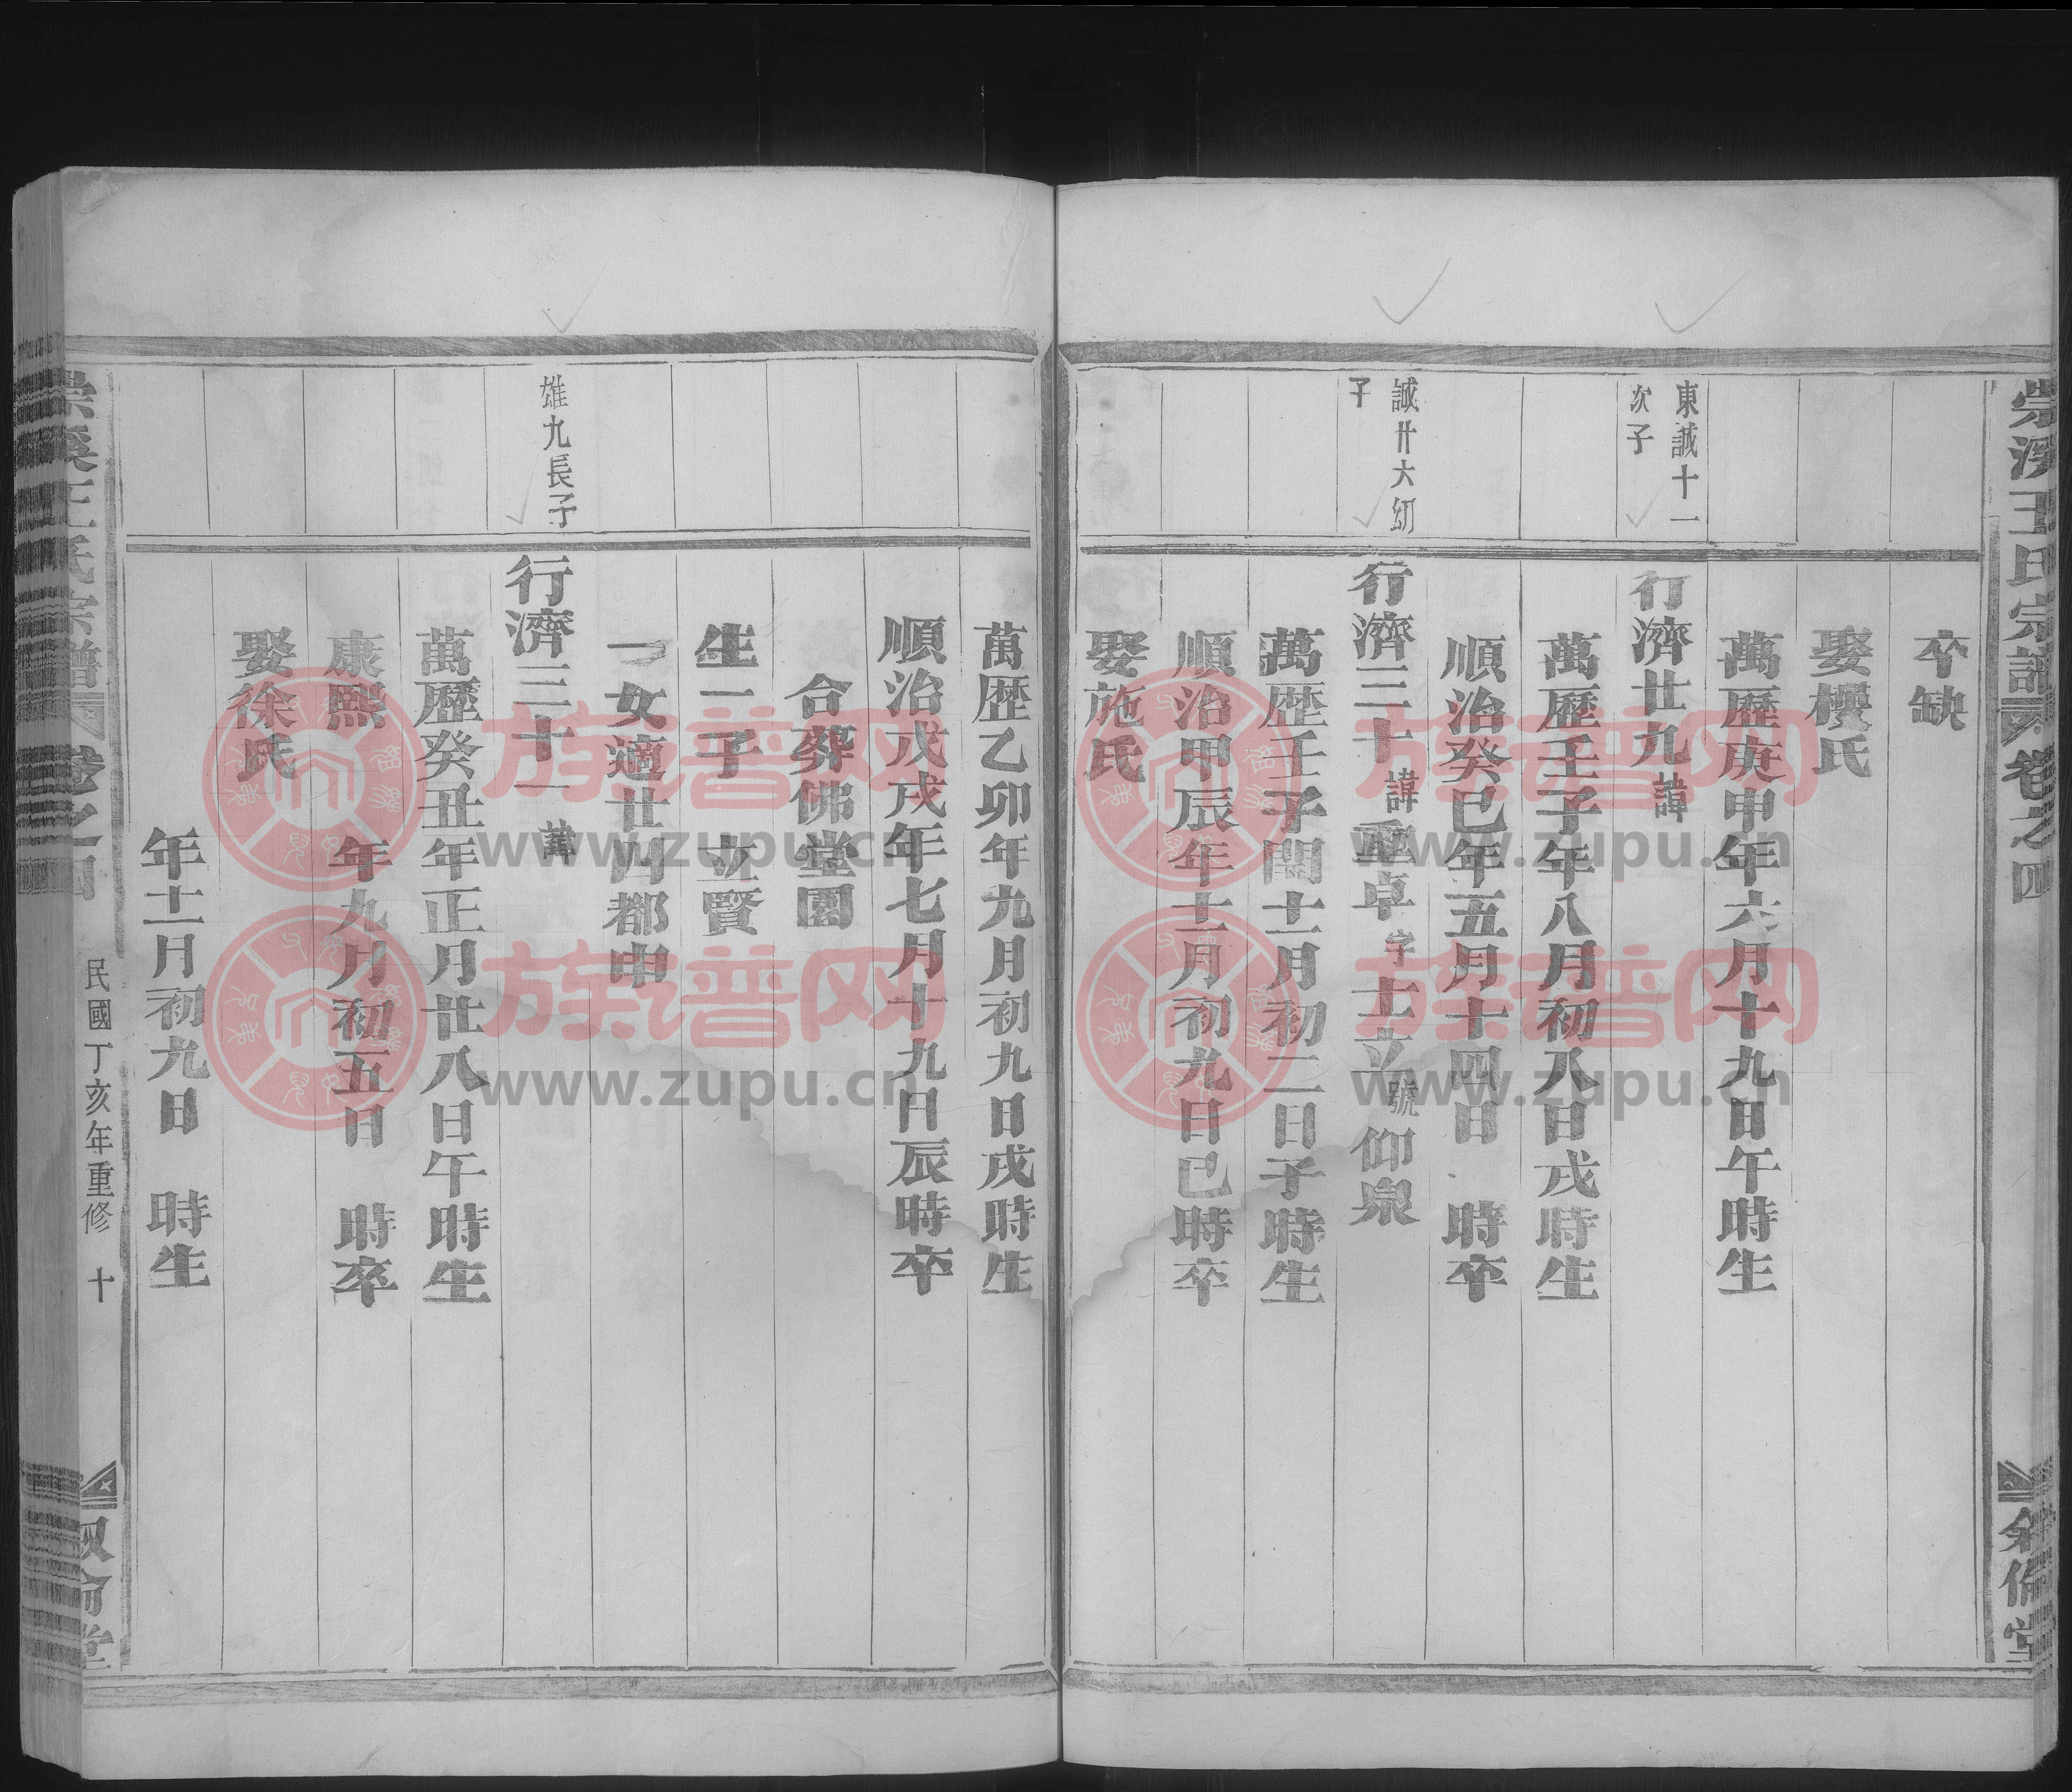 崇溪王氏宗譜 卷之四
叙倫堂
卒缺
娶樓氏
萬歷庚申年六月十九日午時生
東誠十一
次子
行濟廿九 諱
萬歷壬子年八月初八日戌時生
順治癸巳年五月十四日 時卒
誠廿六幼
子
行濟三十 諱重卓 字士立 號仰泉
萬歷壬子閏十一月初二日子時生
順治甲辰年十二月初九日巳時卒
娶施氏
萬歷乙卯年九月初九日戌時生
順治戊戌年七月十九日辰時卒
合葬佛堂園
生一子 立賢
一女適廿四都申
雄九長子
行濟三十一 諱
萬歷癸丑年正月廿八日午時生
康熙 年九月初五日 時卒
娶徐氏
年十一月初九日 時生
民國丁亥年重修 十
族谱网
www.zupu.cn
族谱网
www.zupu.cn
族谱网
www.zupu.cn
族谱网
www.zupu.cn